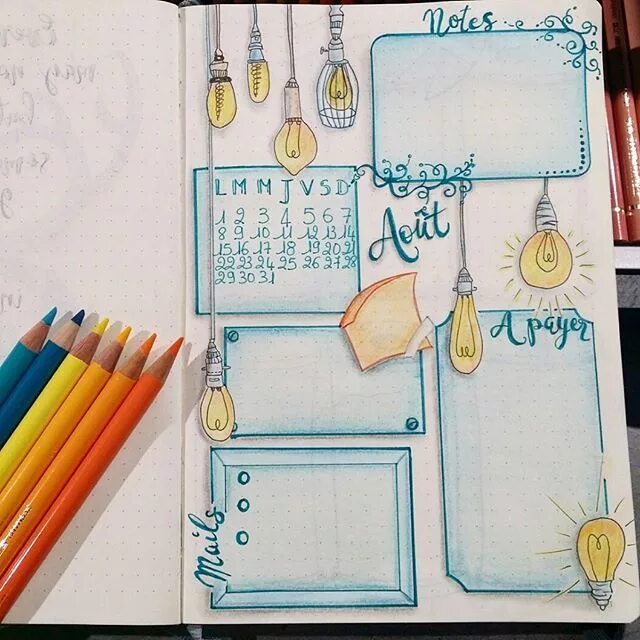 Notes
L M M J V S D
1 2 3 4 5 6 7
8 9 10 11 12 13 14
15 16 17 18 19 20 21
22 23 24 25 26 27 28
29 30 31
Août
A payer
Mails